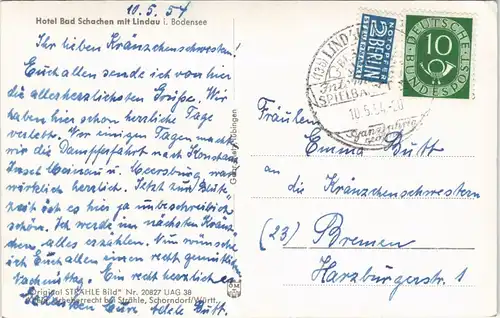 10. 5. 54
Hotel Bad Schachen mit Lindau i. Bodensee
Ihr lieben Kränzchenschwestern!
Euch allen sende ich von hier
die allerherzlichsten Grüße. Wir
haben hier schon herrliche Tage
verlebt. Vor einigen Tagen mach-
wir die Dampferfahrt nach Konstanz
Insel Mainau, u. Meersburg war
wirklich herrlich. Jetzt zur Blüte-
zeit ist es hier ja unbeschreiblich
schön. Ich werde im nächsten Kränz-
chen, alles erzählen. Nun wünsche
ich Euch allen einen recht gemütlichen
Nachmittag. Ein recht herzliches
Euch allen Eure alte Butt.
Original STRÄHLE Bild Nr. 20827 LIAG 38
Strähle, Schorndorf/Württ.
LINDAU
SPIELBANK
10.5.54.-20
NOTOPFER
2 BERLIN
STEUERMARKE
DEUTSCHE
10
BUNDESPOST
Fräulein
Emma Butt
an die Kränzchenschwestern
(23) Bremen
Harzburgerstr. 1